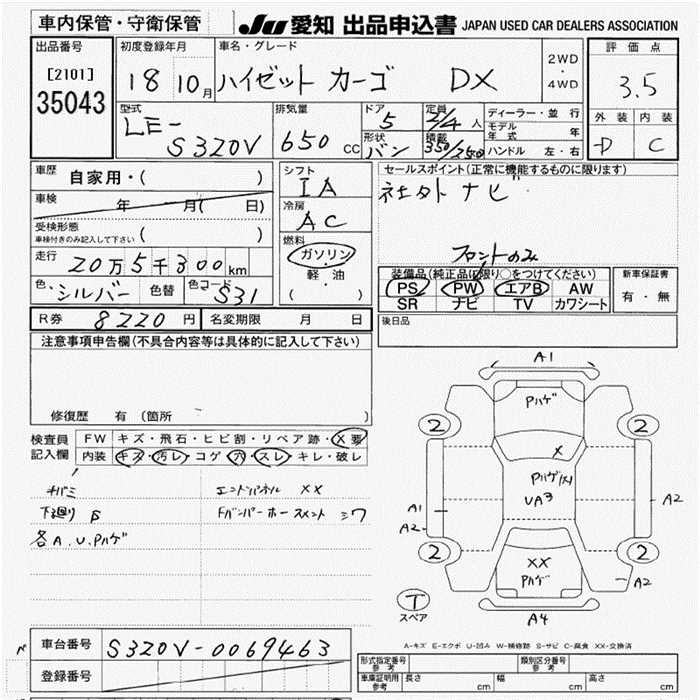 車内保管・守衛保管
JU 愛知 出品申込書 JAPAN USED CAR DEALERS ASSOCIATION
出品番号
[2101]
35043
初度登録年月
18 10月
車名・グレード
ハイゼット カーゴ DX
2WD
・
4WD
評価点
3.5
外装 内装
D C
型式
LE-
S320V
排気量
650 cc
ドア
5
形状
バン
定員
2/4 人
積載
350/250
ディーラー・並行
モデル
年式 年
ハンドル 左・右
車歴
自家用・( )
車検
年 月( 日)
受検形態
車検付きのみ記入して下さい ( )
走行
20万5千300km
色
シルバー
色替
色コード
S31
シフト
IA
冷房
AC
燃料
ガソリン
・
軽・油
( )
セールスポイント(正常に機能するものに限ります)
社外ナビ
フロントのみ
装備品(純正品に限り○をつけてください)
PS PW エアB AW
SR ナビ TV カワシート
新車保証書
有・無
R券 8220円
名変期限 月 日
後日品
注意事項申告欄(不具合内容等は具体的に記入して下さい)
修復歴 有 (箇所
検査員
記入欄
FW キズ・飛石・ヒビ割・リペア跡・X要
内装 キズ・汚レ・コゲ・穴・スレ・キレ・破レ
エンドパネル XX
下廻り
各A.U.Pハゲ
A1
Pハゲ
2 2
X
Pハゲ
UA3
A1
A2
A2
2 2
XX
Pハゲ
A2
A4
T
スペア
A-キズ E-エクボ U-凹み W-補修跡 S-サビ C-腐食 XX-交換済
車台番号
S320V-0069463
登録番号
形式指定番号
参考
類別区分番号
参考
車庫証明用
参考
長さ cm
幅 cm
高さ cm